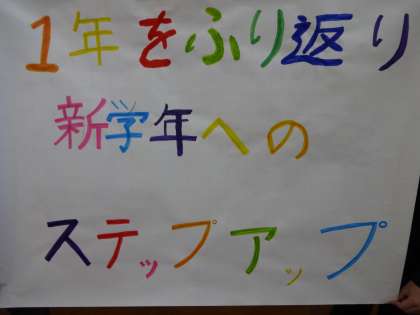 1年をふり返り
新学年への
ステップアップ